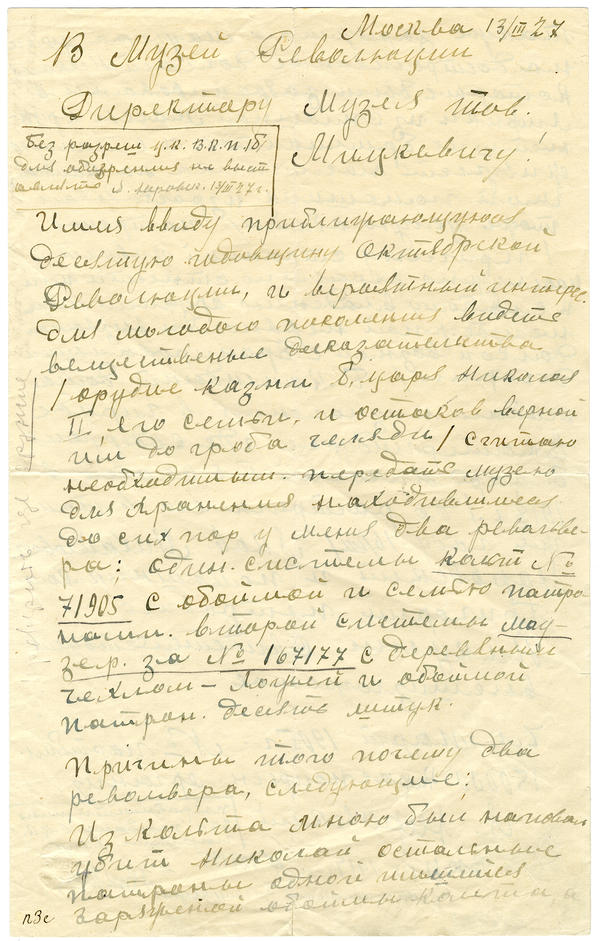 Москва 13/III 27
В Музей Революции
Директару Музея тов.
Мицкевичу!
Без разреш у.К. В.К.П /б/
для обозрения не выст
13/III 27 г.
Имея ввиду приближающуюся
десятую годовщину Октябрской
Революции, и вероятный интерес
для молодого поколения видеть
вещественные доказательства
/ орудие казни б. царя Николая
II, его семьи, и остаков верной
им до гроба челяди / считаю
необходимым передать Музею
для хранения находившиеся
до сих пор у меня два револьве-
ра; один системы кольт №
71905 с обоймой и семью патро
нами. второй системы мау-
зер. за № 167177 с деревяным
чехлом - ложей и обоймой
патрон. десять штук.
Причины того почему два
револвера, следующие:
Из кольта мною был наповал
убит Николай остальные
патроны одной
заряженой обоймы кольта, а
п3с